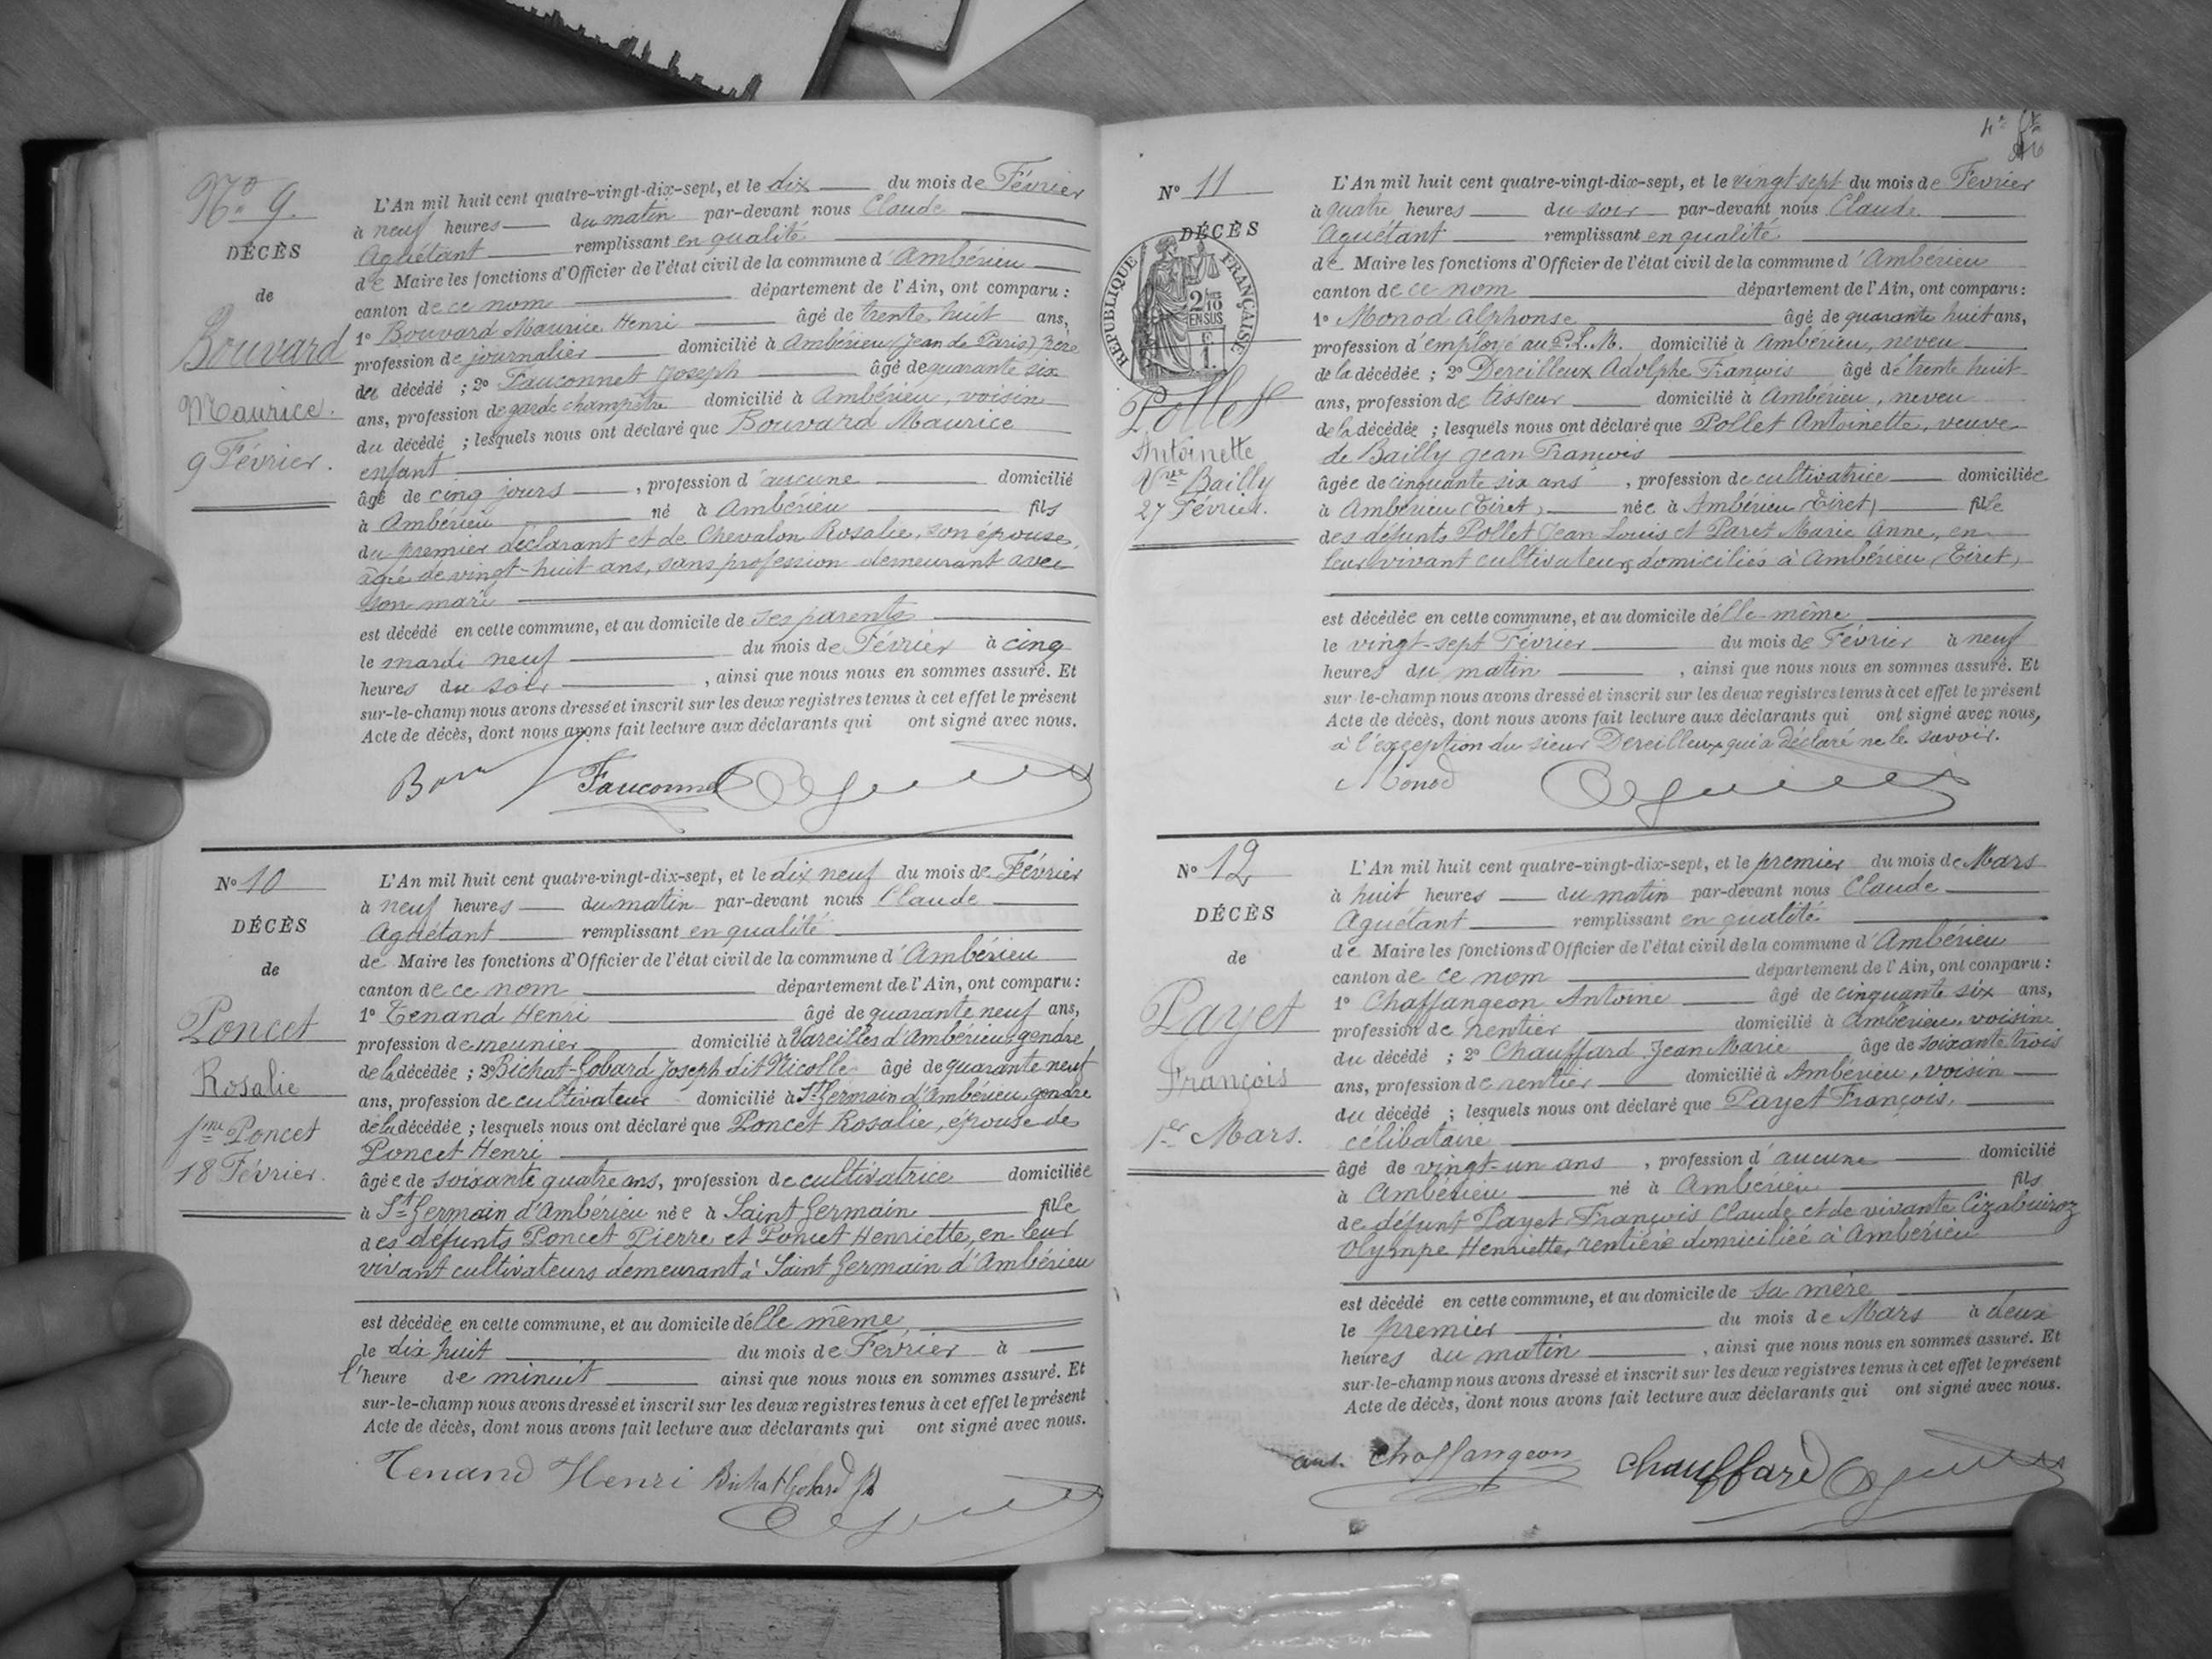 No 9.
DÉCÈS
de
Bouvard
Maurice.
9 Février.
L'An mil huit cent quatre-vingt-dix-sept, et le dix du mois de Février
à neuf heures du matin par-devant nous Claude
Aguétant remplissant en qualité
de Maire les fonctions d'Officier de l'état civil de la commune d'Ambérieu
canton de ce nom département de l'Ain, ont comparu :
1o Bouvard Maurice Henri âgé de trente huit ans,
profession de journalier domicilié à Ambérieu (Jean de Paris) père
du décédé ; 2o Fauconnet Joseph âgé de quarante six
ans, profession de garde champêtre domicilié à Ambérieu, voisin
du décédé ; lesquels nous ont déclaré que Bouvard Maurice
enfant
âgé de cinq jours , profession d'aucune domicilié
à Ambérieu né à Ambérieu fils
du premier déclarant et de Chevalon Rosalie, son épouse,
âgée de vingt-huit ans, sans profession demeurant avec
son mari
est décédé en cette commune, et au domicile de ses parents
le mardi neuf du mois de Février à cinq
heures du soir , ainsi que nous nous en sommes assuré. Et
sur-le-champ nous avons dressé et inscrit sur les deux registres tenus à cet effet le présent
Acte de décès, dont nous avons fait lecture aux déclarants qui ont signé avec nous.
Fauconnet
No 10
DÉCÈS
de
Poncet
Rosalie
fme Poncet
18 Février.
L'An mil huit cent quatre-vingt-dix-sept, et le dix neuf du mois de Février
à neuf heures du matin par-devant nous Claude
Aguétant remplissant en qualité
de Maire les fonctions d'Officier de l'état civil de la commune d'Ambérieu
canton de ce nom département de l'Ain, ont comparu :
1o Tenand Henri âgé de quarante neuf ans,
profession de meunier domicilié à Vareilles d'Ambérieu, gendre
de la décédée ; 2o Bichat-Gobard Joseph dit Nicolle âgé de quarante neuf
ans, profession de cultivateur domicilié à St Germain d'Ambérieu, gendre
de la décédée ; lesquels nous ont déclaré que Poncet Rosalie, épouse de
Poncet Henri
âgée de soixante quatre ans, profession de cultivatrice domiciliée
à St Germain d'Ambérieu née à Saint Germain fille
des défunts Poncet Pierre et Poncet Henriette, en leur
vivant cultivateurs demeurant à Saint Germain d'Ambérieu
est décédée en cette commune, et au domicile d'elle même
le dix huit du mois de Février à
l'heure de minuit ainsi que nous nous en sommes assuré. Et
sur-le-champ nous avons dressé et inscrit sur les deux registres tenus à cet effet le présent
Acte de décès, dont nous avons fait lecture aux déclarants qui ont signé avec nous.
Tenand Henri Bichat Gobard
4e
No 11
DÉCÈS
RÉPUBLIQUE FRANÇAISE
2/10 EN SUS
Pollet
Antoinette
Vve Bailly
27 Février.
L'An mil huit cent quatre-vingt-dix-sept, et le vingt sept du mois de Février
à quatre heures du soir par-devant nous Claude
Aguétant remplissant en qualité
de Maire les fonctions d'Officier de l'état civil de la commune d'Ambérieu
canton de ce nom département de l'Ain, ont comparu :
1o Monod Alphonse âgé de quarante huit ans,
profession d'employé au P.L.M. domicilié à Ambérieu, neveu
de la décédée ; 2o Dereilleux Adolphe François âgé de trente huit
ans, profession de lisseur domicilié à Ambérieu, neveu
de la décédée ; lesquels nous ont déclaré que Pollet Antoinette, veuve
de Bailly Jean François
âgée de cinquante six ans , profession de cultivatrice domiciliée
à Ambérieu (Tiret) née à Ambérieu (Tiret) fille
des défunts Pollet Jean Louis et Paret Marie Anne, en
leur vivant cultivateurs domiciliés à Ambérieu (Tiret)
est décédée en cette commune, et au domicile d'elle-même
le vingt-sept Février du mois de Février à neuf
heures du matin , ainsi que nous nous en sommes assuré. Et
sur-le-champ nous avons dressé et inscrit sur les deux registres tenus à cet effet le présent
Acte de décès, dont nous avons fait lecture aux déclarants qui ont signé avec nous,
à l'exception du sieur Dereilleux qui a déclaré ne le savoir.
Monod
No 12
DÉCÈS
de
Payet
François
1er Mars.
L'An mil huit cent quatre-vingt-dix-sept, et le premier du mois de Mars
à huit heures du matin par-devant nous Claude
Aguétant remplissant en qualité
de Maire les fonctions d'Officier de l'état civil de la commune d'Ambérieu
canton de ce nom département de l'Ain, ont comparu :
1o Chaffangeon Antoine âgé de cinquante six ans,
profession de rentier domicilié à Ambérieu, voisin
du décédé ; 2o Chauffard Jean Marie âgé de soixante trois
ans, profession de rentier domicilié à Ambérieu, voisin
du décédé ; lesquels nous ont déclaré que Payet François,
célibataire
âgé de vingt-un ans , profession d'aucune domicilié
à Ambérieu né à Ambérieu fils
de défunt Payet François Claude et de vivante Cizabuiroz
Olympe Henriette, rentière domiciliée à Ambérieu
est décédé en cette commune, et au domicile de sa mère
le premier du mois de Mars à deux
heures du matin , ainsi que nous nous en sommes assuré. Et
sur-le-champ nous avons dressé et inscrit sur les deux registres tenus à cet effet le présent
Acte de décès, dont nous avons fait lecture aux déclarants qui ont signé avec nous.
ant. Chaffangeon Chauffard